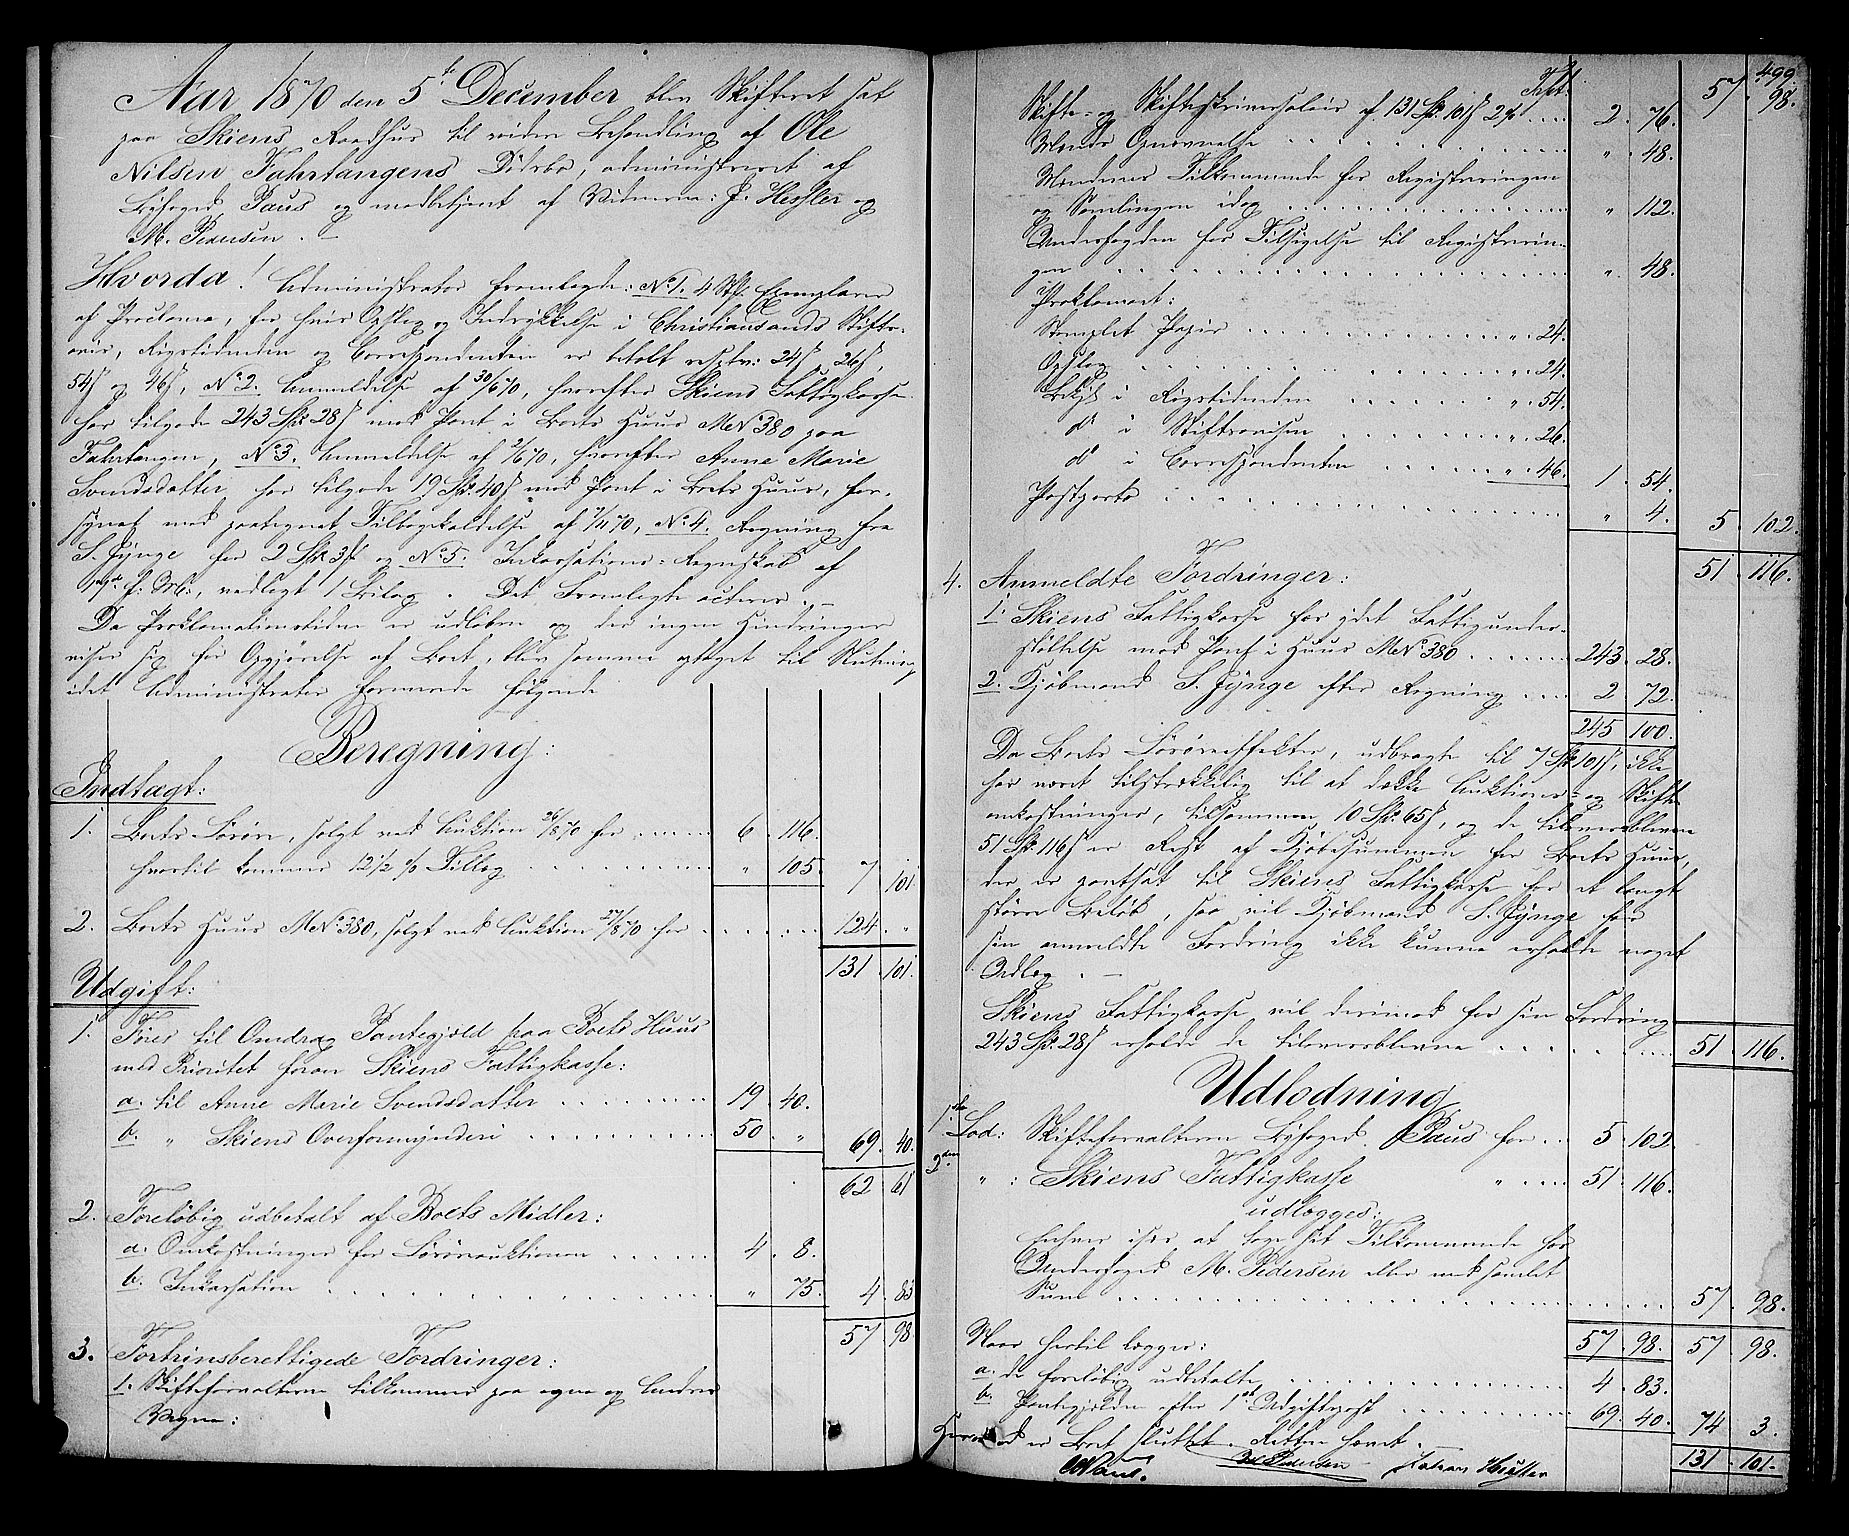 Aar 1870 den 5te December blev Skifteret sat
paa Skiens Raadhus til videre Behandling af Ole
Nilsen Fahrtangens Dødsbo, administreret af
Byfoged Paus og medbetjent af Vidnerne: J. Hesler og
M. Pedersen. –
Hvorda! Administrator fremlagde: No 1. 4 Stk: Exemplarer
af Proclama, for hvis Opslag og Indrykkelse i Christiansands Stifts-
avis, Rigstidenden og Correspondenten er betalt resptv: 24 ß, 26 ß,
54 ß og 46 ß, No 2. Anmeldelse af 30/6 70, hvorefter Skiens Fattigkasse
har tilgode 243 Spd. 28 ß med Pant i Boets Huus M No 380 paa
Fahrtangen, No 3. Anmeldelse af 2/6 70, hvorefter Anne Marie
Svendsdatter har tilgode 19 Spd. 40 ß med Pant i Boets Huus, for-
synet med paategnet Tilbagekaldelse af 7/11 70, No 4. Regning fra
S. Jynge for 2 Spd. 3 ß og No 5. Inkassations-Regnskab af
f: M:, vedlagt 1 Bilag. Det Fremlagte acteres. –
Da Proklamationstiden er udløben og der ingen Hindringer
viser sig for Opgjørelse af Boet, blev samme optaget til Slutning
idet Administrator fremlagde følgende
Beregning:
Indtægt:
1. Boets Løsøre, solgt ved Auktion 26/8 70 for 6 . 116.
hvortil kommer 12 1/2 % Tillæg " 105. 7 101.
2. Boets Huus M No 380, solgt ved Auktion 27/8 70 for 124 . "
131 . 101.
Udgift:
1. Føres til Omdrag Pantegjæld paa Boets Huus
med Prioritet foran Skiens Fattigkasse:
a. til Anne Marie Svendsdatter 19 40.
b. " Skiens Overformynderi 50 " 69 . 40.
62 61
2. Foreløbig udbetalt af Boets Midler:
a. Omkostninger for Løsøreauktionen 4 . 8.
b. Inkassation " 75. 4 . 83
57 . 98
3. Fortrinsberettigede Fordringer:
1. Skifteforvalteren tilkommer paa egne og Andres
Vegne:
499.
Tspt. 57 . 98.
Skifte- og Skifteskriversalair af 131 Spd. 101 ß 2% 2 . 76.
Mænds Opnævnelse " . 48.
Mændenes Tilkommende for Registreringen
og Samlingen idag " . 112.
Underfogden for Tilsigelse til Registrerin-
gen " . 48.
Proklamaet:
Stemplet Papir " . 24.
Opslag " . 24.
Bekjt. i Rigstidenden " . 54.
do i Stiftsavisen " . 26.
do i Correspondenten " . 46. 1 . 54.
Postporto " . 4. 5 . 102.
51 . 116.
4. Anmeldte Fordringer:
1. Skiens Fattigkasse for ydet Fattigunder-
støttelse med Pant i Huus M No 380 243 . 28.
2. Kjøbmand S. Jynge efter Regning 2 . 72.
245 100.
Da Boets Løsøreeffekter, udbragte til 7 Spd 101 ß, ikke
har været tilstrækkelig til at dække Auktions- og Skifte-
omkostninger, tilsammen 10 Spd. 65 ß, og de tiloversblevne
51 Spd. 116 ß er Rest af Kjøbesummen for Boets Huus,
der er pantsat til Skiens Fattigkasse for et langt
større Beløb, saa vil Kjøbmand S. Jynge for
sin anmeldte Fordring ikke kunne erholde noget
Udlæg. –
Skiens Fattigkasse vil derimod for sin Fordring
243 Spd. 28 ß erholde de tiloversblevne 51 . 116.
Udlodning
1ste Lod: Skifteforvalteren Byfoged Paus for 5 . 102.
2den " : Skiens Fattigkasse " 51 . 116.
udlægges:
Enhver især at tage sit Tilkommende hos
Underfoged M. Pedersen eller med samlet
Sum 57 . 98.
57 . 98. 57 . 98.
Naar hertil lægges:
a. de foreløbig udbetalte 4 . 83.
b. Pantegjælden efter 1ste Udgiftspost 69 . 40. 74 3.
Hermed er Boet sluttet. Retten hævet. –
131 . 101.
Paus. M Pedersen Johan Hesler